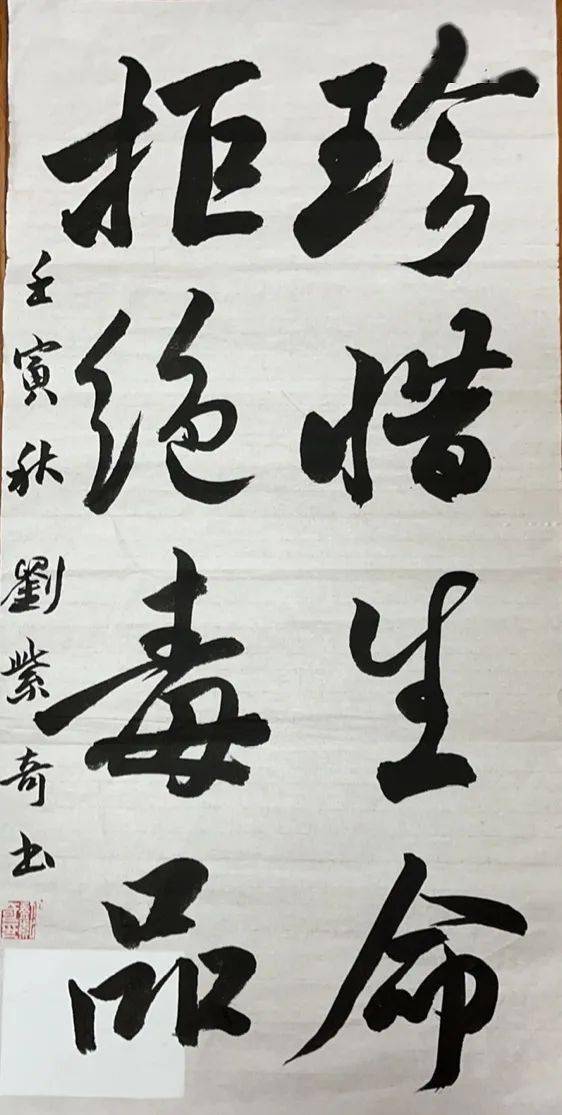 珍惜生命
拒绝毒品
壬寅秋劉紫奇书